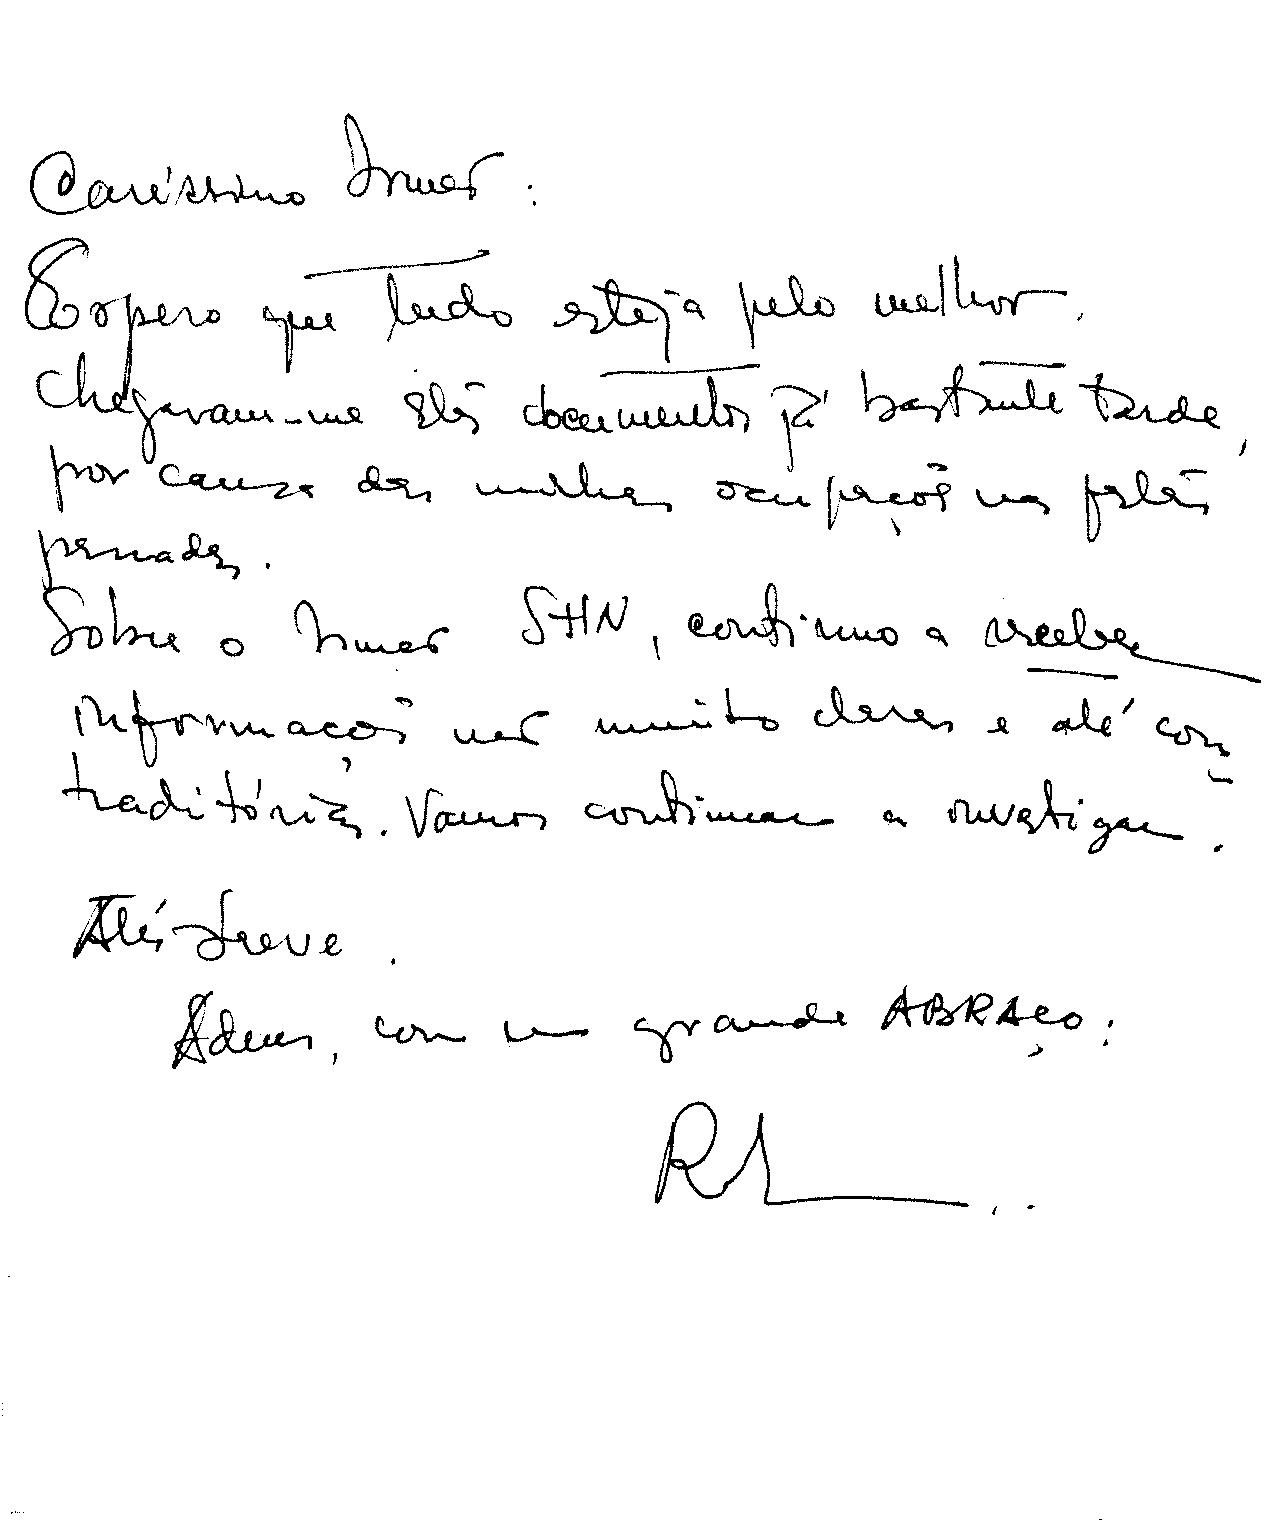 Caríssimo Irmão:
Espero que tudo esteja pelo melhor.
Chegaram-me estes documentos já bastante tarde,
por causa das minhas ocupações nas festas
passadas.
Sobre o Irmão SHN, continuo a receber
informações não muito claras e até con-
traditórias. Vamos continuar a investigar.
Até breve.
Adeus, com um grande ABRAÇO: